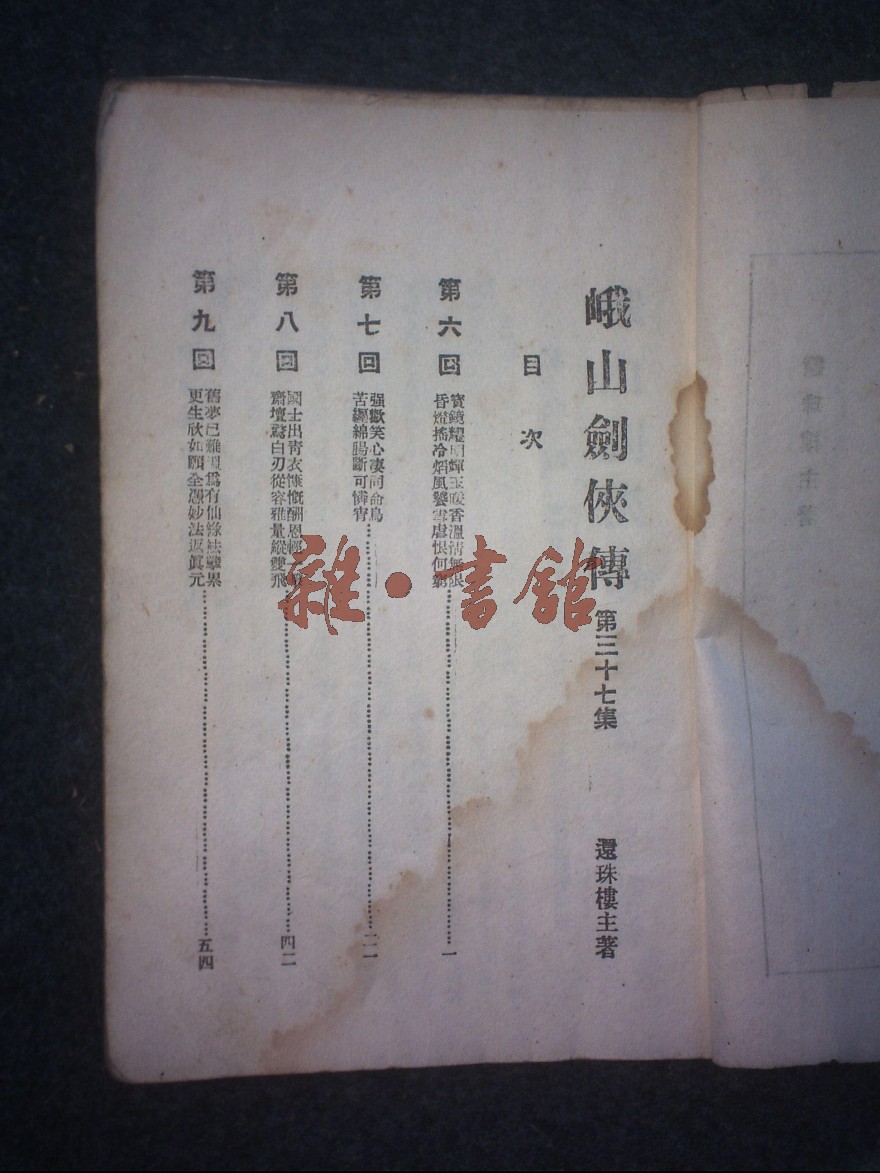 峨山劍俠傳 第三十七集 還珠樓主著
目次
第六回
寶鏡耀明輝玉煖香溫情無限
昏燈搖冷焰風饕雪虐恨何窮……一
第七回
强歡笑心凄同命鳥
苦纏綿腸斷可憐宵……二一
第八回
國士出靑衣慷慨酬恩輕一
齋壇驚白刃從容雅量縱雙飛……四二
第九回
舊夢已難溫爲有仙緣祛孽累
更生欣如願全憑妙法返眞元……五四
雜·書館